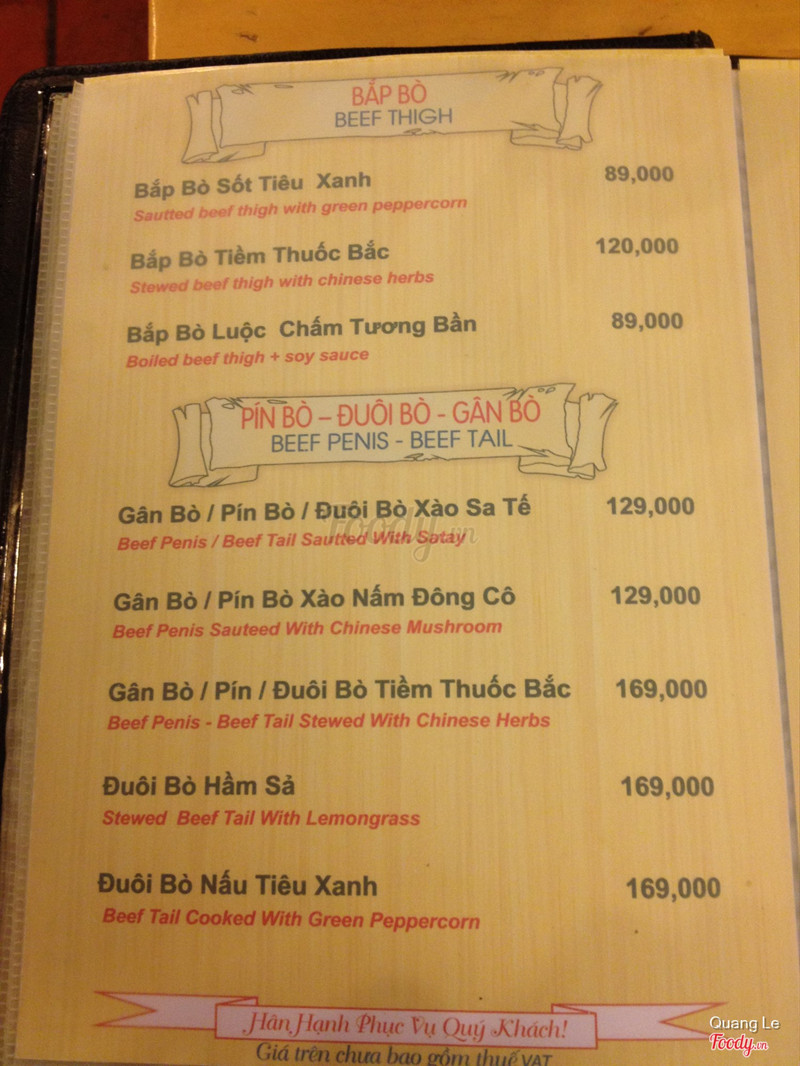 BẮP BÒ
BEEF THIGH
Bắp Bò Sốt Tiêu Xanh 89,000
Sautted beef thigh with green peppercorn
Bắp Bò Tiềm Thuốc Bắc 120,000
Stewed beef thigh with chinese herbs
Bắp Bò Luộc Chấm Tương Bần 89,000
Boiled beef thigh + soy sauce
PÍN BÒ – ĐUÔI BÒ - GÂN BÒ
BEEF PENIS - BEEF TAIL
Gân Bò / Pín Bò / Đuôi Bò Xào Sa Tế 129,000
Beef Penis / Beef Tail Sautted With Satay
Foody.vn
Gân Bò / Pín Bò Xào Nấm Đông Cô 129,000
Beef Penis Sauteed With Chinese Mushroom
Gân Bò / Pín / Đuôi Bò Tiềm Thuốc Bắc 169,000
Beef Penis - Beef Tail Stewed With Chinese Herbs
Đuôi Bò Hầm Sả 169,000
Stewed Beef Tail With Lemongrass
Đuôi Bò Nấu Tiêu Xanh 169,000
Beef Tail Cooked With Green Peppercorn
Hân Hạnh Phục Vụ Quý Khách!
Giá trên chưa bao gồm thuế VAT
Quang Le
Foody.vn